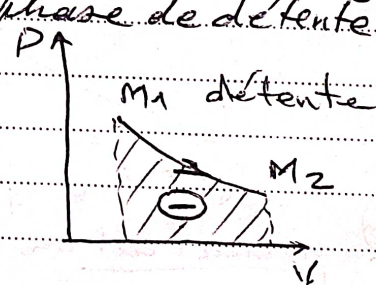 phase de détente
P
M1 détente
M2
⊖
V